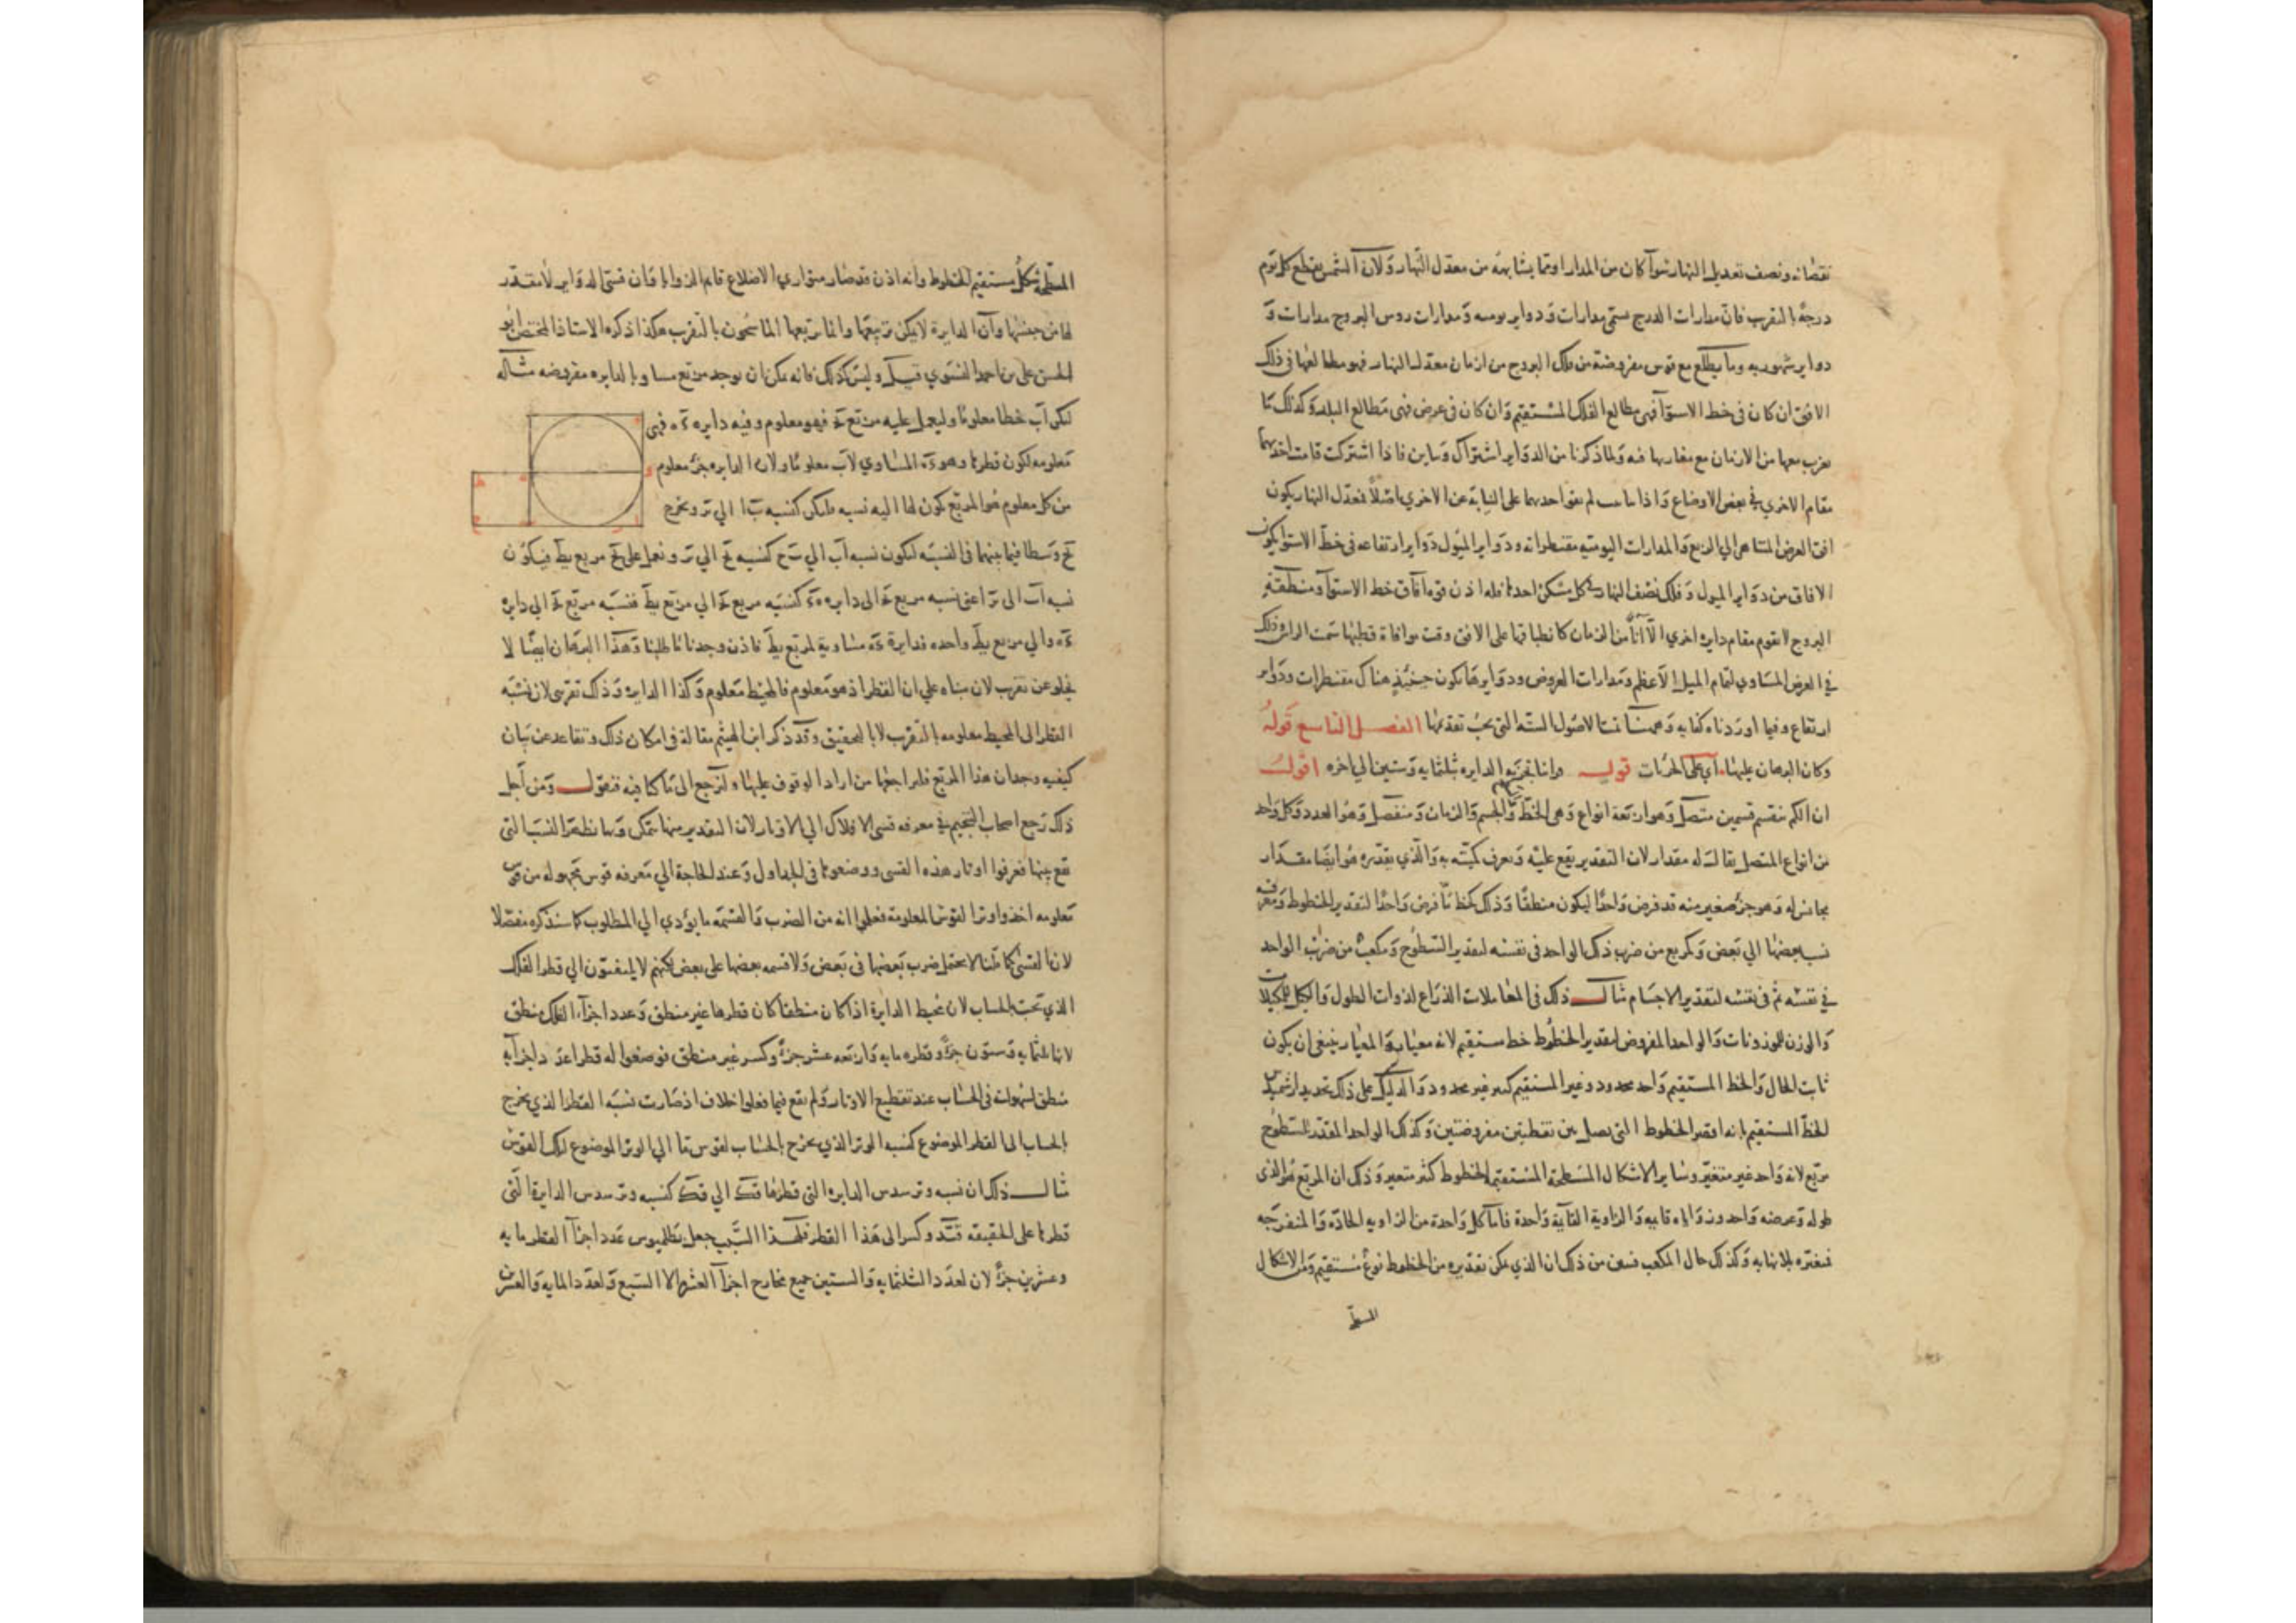 نقصانه ونصف تعديل النهار سوآ كان من المدارا وتما يشابهه من معدل النهار ولان الشمس يقطع كل يوم
درجة بالتقريب فان مدارات الدرج ستمي مدارات ودواير يوميه ومدارات روس البروج مدارات و
دواير شهوريه وما يطلع مع قوس مفروضة من فلك البروج من ازمان معدل النهار فهو مطالعها في ذلك
الافق ان كان في خط الاستوآ فهى مطالع الفلك المستقيم وان كان في عرض فهى مطالع البلد وكذلك ما
يغرب معها من الازمان مع مغاربها فيه ولما ذكرنا من الدواير اشتراك وتباين فاذا اشتركت قامت احديهما
مقام الاخري في بعض الاوضاع واذا لم احدهما على النيابة عن الاخري اصلا فمعدل النهار يكون
افق العرض المتناهى الي الربع والمدارات اليوميه مقنطراته ودواير الميول دواير ارتفاعه في خط الاستوا يكون
الافاق من دواير الميول وفلك نصف النهار كل مسكن احدها فله اذن قوة آفاق خط الاستوآ ومنطقة
البروج لا تقوم مقام دايرة اخري الا آنا من الزمان كانطباقها على الافق وقت موافاة قطبها سمت الراس وذلك
في العرض المساوي لتمام الميل الاعظم ومدارات العروض ودوايرها تكون حينئذ هناك مقنطرات ودواير
ارتفاع وفيما اوردناه كفايه وههنا تمت الاصول السته التي يجب تقديمها الفصل التاسع قوله
وكان البرهان عليها آي على الحركات قوله وانا بتجزيه الدايره بثلثمايه وستين الي اخره اقول
ان الكم ينقسم قسمين متصل وهو اربعة انواع وهى الخط والجسم والزمان ومنفصل وهو العدد وكل واحد
من انواع المتصل يقال له مقدار لان التقدير يقع عليه ويعرف كميته به والذي يقدره هو ايضا مقدار
مجانس له وهو جزء صغير منه قد فرض واحدا ليكون منطقا وذلك كخط ما فرض واحدا لتقدير الخطوط ومعرفة
نسب بعضها الي بعض وكمربع من ضرب ذلك الواحد في نفسه لتقدير السطوح ومكعب من ضرب الواحد
في نفسه ثم في نفسه لتقدير الاجسام مثال ذلك في المعاملات الذراع لذوات الطول والكيل للمكيلات
والوزن للموزونات والواحد المفروض لتقدير الخطوط خط مستقيم لانه معيار والمعيار ينبغي ان يكون
ثابت الحال والخط المستقيم واحد محدود وغير المستقيم كثير غير محدود والدليل على ذلك تحديد ارشميدس
للخط المستقيم بانه اقصر الخطوط التي يصل بين نقطتين مفروضتين وكذلك الواحد المقدر للسطوح
مربع لانه واحد غير متغير وساير الاشكال المسطحة المستقيمة الخطوط كثير متغير وذلك ان المربع هو الذى
طوله وعرضه واحد وزواياه قايمه والزاوية القايمة واحدة فاما كل واحدة من الزاويه الحادة والمنفرجه
فمتغيره بلا نهايه وكذلك حال المكعب فتبين من ذلك ان الذي يمكن تقديره من الخطوط نوع مستقيم ومن الاشكال
المسطحة
المسطحة شكل مستقيم الخطوط وانه اذن قد صار متوازي الاضلاع قايم الزوايا وان قسى الدواير لا مقدر
لها من جنسها وآن الدايرة لا يمكن تربيعها وانما يربعها الماسحون بالتقريب هكذا ذكره الاستاذ المختص ابو
الحسن على بن احمد النسوي قيل وليس كذلك فانه يمكن ان يوجد مربع مساو بالدايره مفروضه مثاله
لكن اب خطا معلوما وليعمل عليه مربع فهو معلوم وفيه دايره فهى
معلومه لكون قطرها وهو المساوي لاب معلوما ولان الدايره جزء معلوم
من كل معلوم هو المربع يكون لها اليه نسبه وليكن كنسبه با الي تر ونخرج
تح وسطا فيما بينهما في النسبه ليكون نسبه اب الي تح كنسبه تح الي تر ونعمل على تح مربع يط فيكون
نسبه اب الى تر اعنى نسبه مربع الى دايره كنسبه مربع الي مربع يط فنسبه مربع الي دايره
والي مربع يط واحده فدايرة مساوية لمربع يط فاذن وجدنا ما طلبنا وهذا البرهان ايضا لا
يخلو عن تقريب لان مبناه علي ان القطر اذ هو معلوم فالمحيط معلوم وكذا الدايره وذلك تقريبى لان نسبة
القطر الى المحيط معلومه بالتقريب لا بالتحقيق وقد ذكر ابن الهيثم مقالة في امكان ذلك وتقاعد عن بيان
كيفيه وجدان هذا المربع فليراجعها من اراد الوقوف عليها ولنرجع الى ما كنا فيه فنقول ومن اجل
ذلك رجع اصحاب التنجيم في معرفه قسى الافلاك الي الاوتار لان التقدير منها متمكن وبها نظهر النسب التي
تقع بينها فعرفوا اوتار هذه القسى ووضعوها في الجداول وعند الحاجة الي معرفه قوس مجهوله من قوس
معلومه اخذوا وترا لقوس المعلومة فعلوا انه من الضرب والقسمه ما يؤدي الي المطلوب كما سنذكره مفصلا
لان القسى كما قلنا لا يحتمل ضرب بعضها في بعض ولا قسمه بعضها على بعض لكنهم لا يلتفتون الي قطر الفلك
الذي تحت الحساب لان محيط الدايرة اذا كان منطقا كان قطرها غير منطق وعدد اجزآء الفلك منطق
لانها ثلثمايه وستون جزءا وقطره مايه واربعه عشر جزءا وكسر غير منطق فوضعوا له قطرا عدد اجزآيه
منطق لسهولته في الحساب عند تقطيع الاوتار ولم يقع فيما فعلوا خلاف اذ صارت نسبه القطر الذي يخرج
بالحساب الى القطر الموضوع كنسبه الوتر الذي يخرج بالحساب لقوس ما الي الوتر الموضوع لتلك القوس
مثال ذلك ان نسبه وتر سدس الدايرة التي قطرها قك الي قك كنسبه وتر سدس الدايرة التي
قطرها على الحقيقه قيد وكسر الى هذا القطر فلهذا السبب جعل بطلميوس عدد اجزآ القطر مايه
وعشرين جزءا لان لعدد الثلثمايه والستين جميع مخارج اجزآ العشره الا السبع ولعدد المايه والعشرين